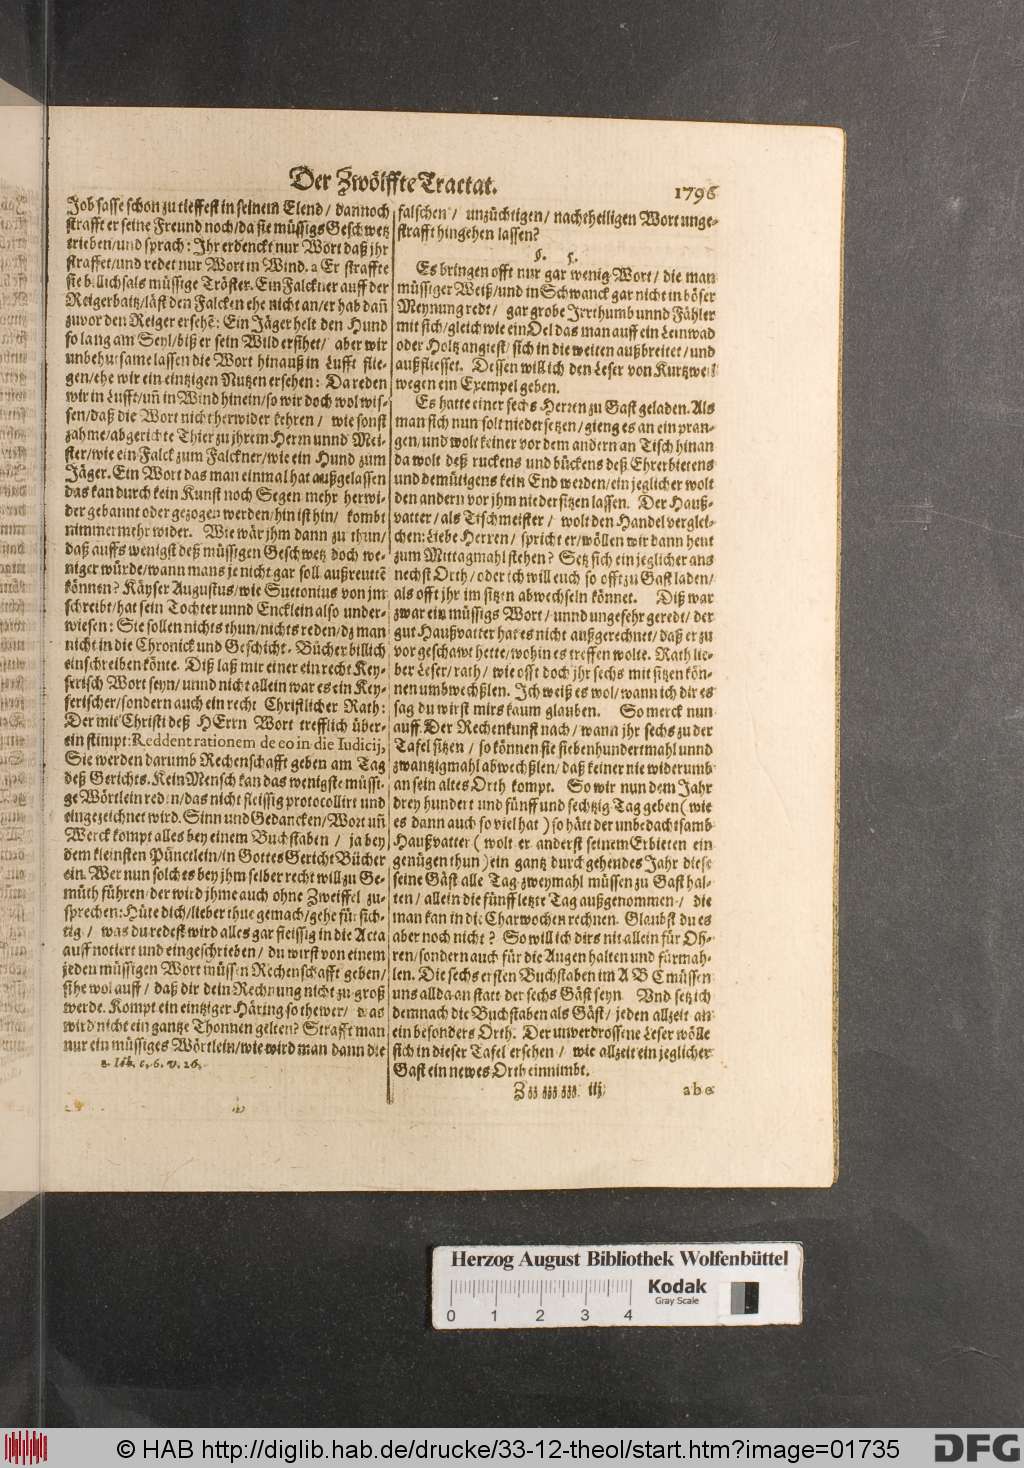 Der Zwölffte Tractat.
1796
Job sasse schon zu tieffest in seinem Elend / dannoch
strafft er seine Freund noch / da sie müssigs Geschwetz
trieben / und sprach: Ihr erdenckt nur Wort daß jhr
straffet / und redet nur Wort in Wind. a Er straffte
sie billich als müssige Tröster. Ein Falckner auff der
Reigerbaitz / läst den Falcken ehe nicht an / er hab dañ
zuvor den Reiger ersehē: Ein Jäger helt den Hund
so lang am Seyl / biß er sein Wild ersihet / aber wir
unbehutsame lassen die Wort hinauß in Lufft flie-
gen / ehe wir ein eintzigen Nutzen ersehen: Da reden
wir in Lufft / uñ in Wind hinein / so wir doch wol wis-
sen / daß die Wort nicht herwider kehren / wie sonst
zahme / abgerichte Thier zu jhrem Herrn unnd Mei-
ster / wie ein Falck zum Falckner / wie ein Hund zum
Jäger. Ein Wort das man einmal hat außgelassen
das kan durch kein Kunst noch Segen mehr herwi-
der gebannt oder gezogen werden / hin ist hin / kombt
nimmermehr wider. Wie wär jhm dann zu thun /
daß auffs wenigst deß müssigen Geschwetz doch we-
niger würde / wann mans je nicht gar soll außreutē
können? Käyser Augustus / wie Suetonius von jm
schreibt / hat sein Tochter unnd Encklein also under-
wiesen: Sie sollen nichts thun / nichts reden / dz man
nicht in die Chronick und Geschicht-Bücher billich
einschreiben könte. Diß laß mir einer ein recht Key-
serisch Wort seyn / unnd nicht allein war es ein Key-
serischer / sondern auch ein recht Christlicher Rath:
Der mit Christi deß HErrn Wort trefflich über-
ein stimpt: Reddent rationem de eo in die Iudicij,
Sie werden darumb Rechenschafft geben am Tag
deß Gerichts. Kein Mensch kan das wenigste müssi-
ge Wörtlein reden / das nicht fleissig protocollirt und
eingezeichnet wird. Sinn und Gedancken / Wort uñ
Werck kompt alles bey einem Buchstaben / ja bey
dem kleinsten Pünctlein / in Gottes Gericht Bücher
ein. Wer nun solches bey jhm selber recht will zu Ge-
müth führen / der wird jhme auch ohne Zweiffel zu-
sprechen: Hüte dich / lieber thue gemach / gehe fürsich-
tig / was du redest wird alles gar fleissig in die Acta
auff notiert und eingeschrieben / du wirst von einem
jeden müssigen Wort müssen Rechenschafft geben /
sihe wol auff / daß dir dein Rechnung nicht zu groß
werde. Kompt ein eintziger Häring so thewer / was
wird nicht ein gantze Thonnen gelten? Strafft man
nur ein müssiges Wörtlein / wie wird man dann die
a. Iob. c. 6. v. 26.
falschen / unzüchtigen / nachtheiligen Wort unge-
strafft hingehen lassen?
§. 5.
Es bringen offt nur gar wenig Wort / die man
müssiger Weiß / und in Schwanck gar nicht in böser
Meynung redt / gar grobe Irrthumb unnd Fähler
mit sich / gleich wie ein Oel das man auff ein Leinwad
oder Holtz angiest / sich in die weiten außbreitet / und
außfliesset. Dessen will ich den Leser von Kurtzweil
wegen ein Exempel geben.
Es hatte einer sechs Herren zu Gast geladen. Als
man sich nun solt nieder setzen / gieng es an ein pran-
gen / und wolt keiner vor dem andern an Tisch hinan
da wolt deß ruckens und bückens deß Ehrerbietens
und demütigens kein End werden / ein jeglicher wolt
den andern vor jhm niedersitzen lassen. Der Hauß-
vatter / als Tischmeister / wolt den Handel verglei-
chen: Liebe Herren / spricht er / wöllen wir dann heut
zum Mittagmahl stehen? Setz sich ein jeglicher ans
nechst Orth / oder ich will euch so offt zu Gast laden /
als offt jhr im sitzen abwechseln könnet. Diß war
zwar ein müssigs Wort / unnd ungefehr geredt / der
gut Haußvatter hat es nicht außgerechnet / daß er zu
vor geschawt hette / wohin es treffen wolte. Rath lie-
ber Leser / rath / wie offt doch jhr sechs mit sitzen kön-
nen umbwechßlen. Ich weiß es wol / wann ich dir es
sag du wirst mirs kaum glauben. So merck nun
auff. Der Rechenkunst nach / wann jhr sechs zu der
Tafel sitzen / so können sie siebenhundertmahl unnd
zwantzigmahl abwechßlen / daß keiner nie widerumb
an sein altes Orth kompt. So wir nun dem Jahr
drey hundert und fünff und sechtzig Tag geben (wie
es dann auch so viel hat) so hätt der unbedachtsamb
Haußvatter (wolt er anderst seinem Erbieten ein
genügen thun) ein gantz durchgehendes Jahr diese
seine Gäst alle Tag zweymahl müssen zu Gast hal-
ten / allein die fünff letzte Tag außgenommen / die
man kan in die Charwochen rechnen. Glaubst du es
aber noch nicht? So will ich dirs nit allein für Oh-
ren / sondern auch für die Augen halten und fürmah-
len. Die sechs ersten Buchstaben im A B C müssen
uns allda an statt der sechs Gäst seyn. Und setz ich
demnach die Buchstaben als Gäst / jeden allzeit an
ein besonders Orth. Der unverdrossene Leser wölle
sich in dieser Tafel ersehen / wie allzeit ein jeglicher
Gast ein newes Orth einnimbt.
Zzz zzz zzz iij
abc
Herzog August Bibliothek Wolfenbüttel
0 1 2 3 4
Kodak
Gray Scale
© HAB http://diglib.hab.de/drucke/33-12-theol/start.htm?image=01735
DFG